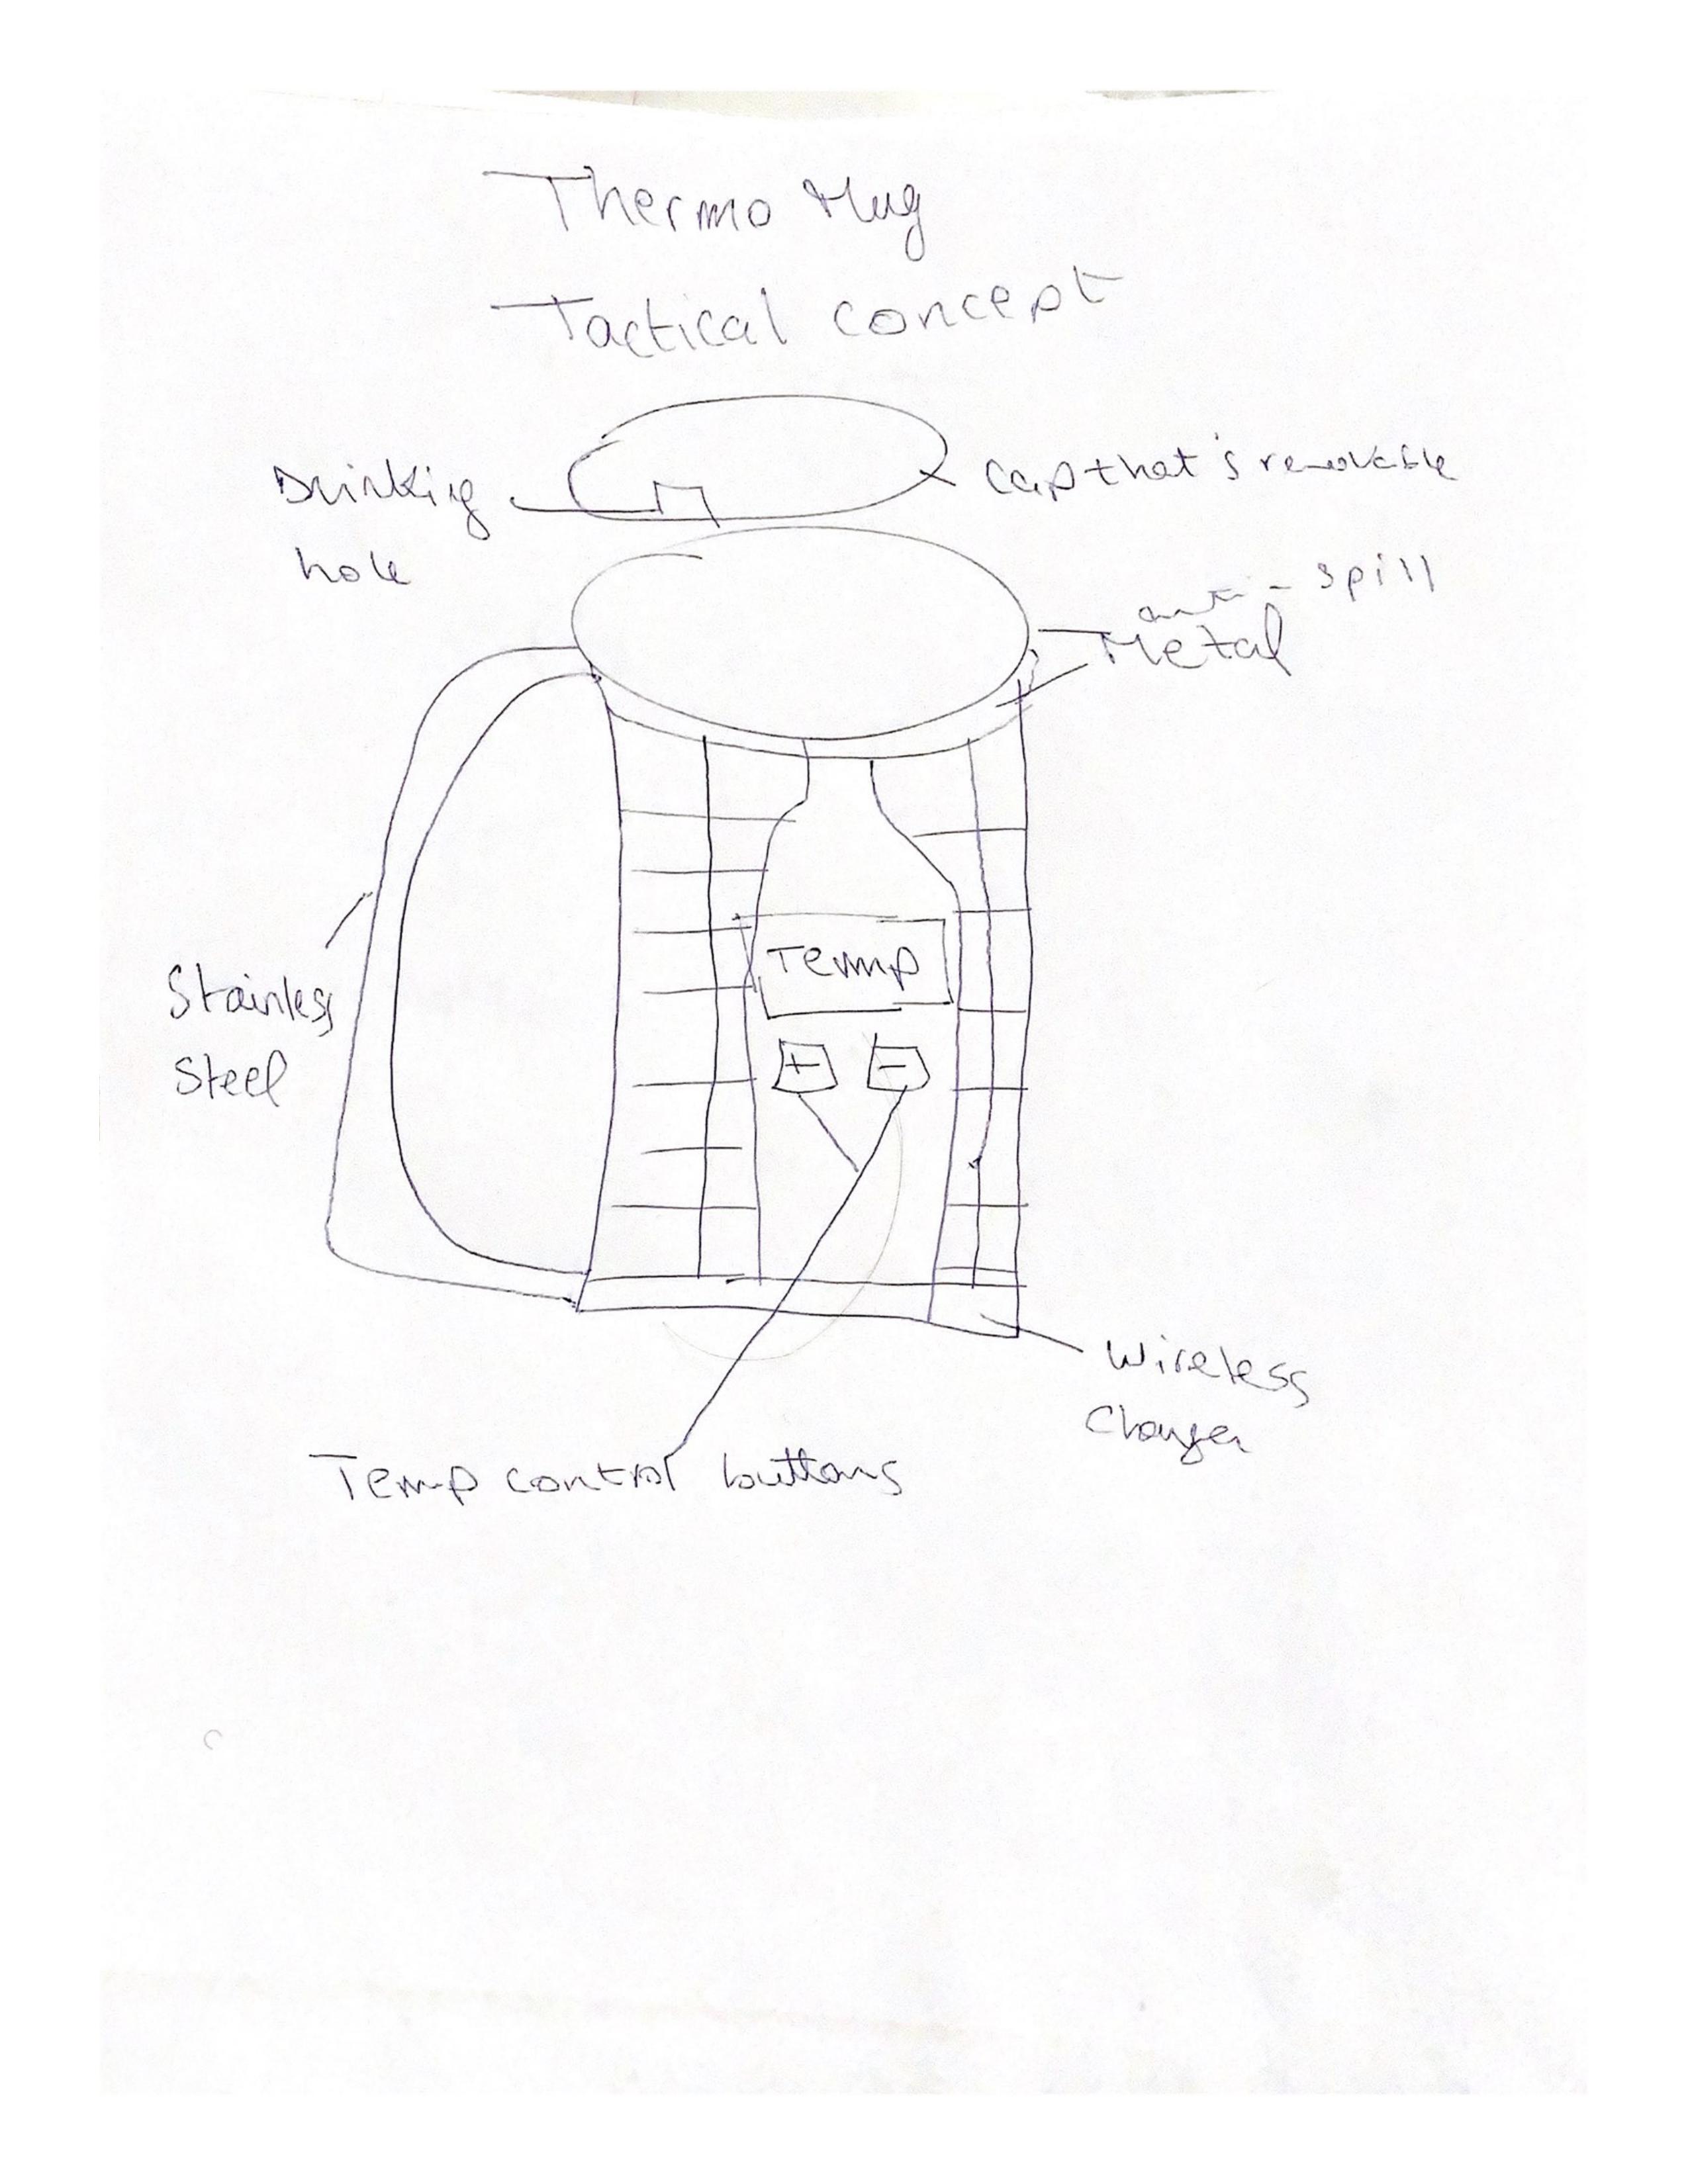 Thermo Mug
Tactical concept
Drinking
hole
Cap that's removable
anti-spill
Metal
Stainless
Steel
Temp
+ -
Wireless
Charger
Temp control buttons